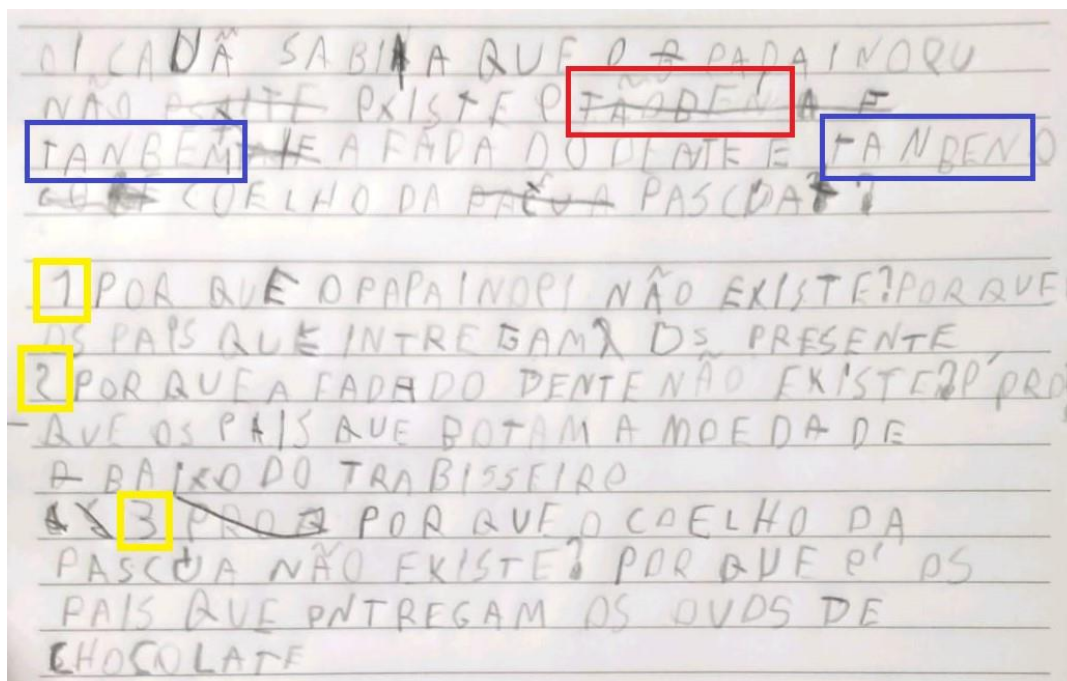 CADÃ SABIA QUE O PAPAI NOQU
NÃO EXISTE TÃOBEN
TANBEM A FADA DO DENTE E TANBEN O
COELHO DA PASCOA?
1 POR QUE O PAPAI NOPI NÃO EXISTE? PORQUE
OS PAIS QUE INTREGAM OS PRESENTE
2 POR QUE A FADA DO DENTE NÃO EXISTE? PRO
QUE OS PAIS QUE BOTAM A MOEDA DE
A BAIXO DO TRABISSEIRO
3 POR QUE O COELHO DA
PASCUA NÃO EXISTE? POR QUE É OS
PAIS QUE ENTREGAM OS OVOS DE
CHOCOLATE